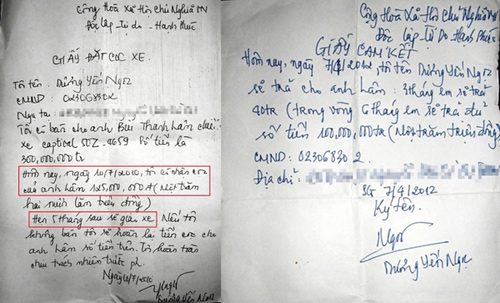 Cộng Hoà Xã Hội Chủ Nghĩa VN
Độc lập Tự Do - Hạnh Phúc
GIẤY ĐẶT CỌC XE
Tôi tên: Dương Yến Ngọc
CMND: 023068302
Ngụ tại:
Tôi có bán cho anh Bùi Thanh Hân chiếc
xe captival 50Z - 4659 số tiền là
300,000,000 tr
Hôm nay, ngày 10/7/2010, tôi có nhận cọc
của anh Hân 125,000,000 đ (Một trăm
hai mươi lăm triệu đồng)
Hẹn 5 tháng sau sẽ giao xe Nếu tôi
không bán tôi sẽ hoàn lại tiền cọc cho
anh Hân số tiền trên. Tôi hoàn toàn
chịu trách nhiệm trước pl.
Ngày 10/7/2010
Ngọc
Dương Yến Ngọc
Cộng Hoà Xã Hội Chủ Nghĩa VN
Độc lập Tự Do Hạnh Phúc
GIẤY CAM KẾT
Hôm nay, ngày 7/4/2012 tôi tên Dương Yến Ngọc
sẽ trả cho anh Hân: 3 tháng em sẽ trả
40 tr (trong vòng 6 tháng em sẽ trả đủ
số tiền 100,000,000 tr (Một trăm triệu đồng)
CMND: 023068302
Địa chỉ:
SG 7/4/2012
Ký tên
Ngọc
Dương Yến Ngọc